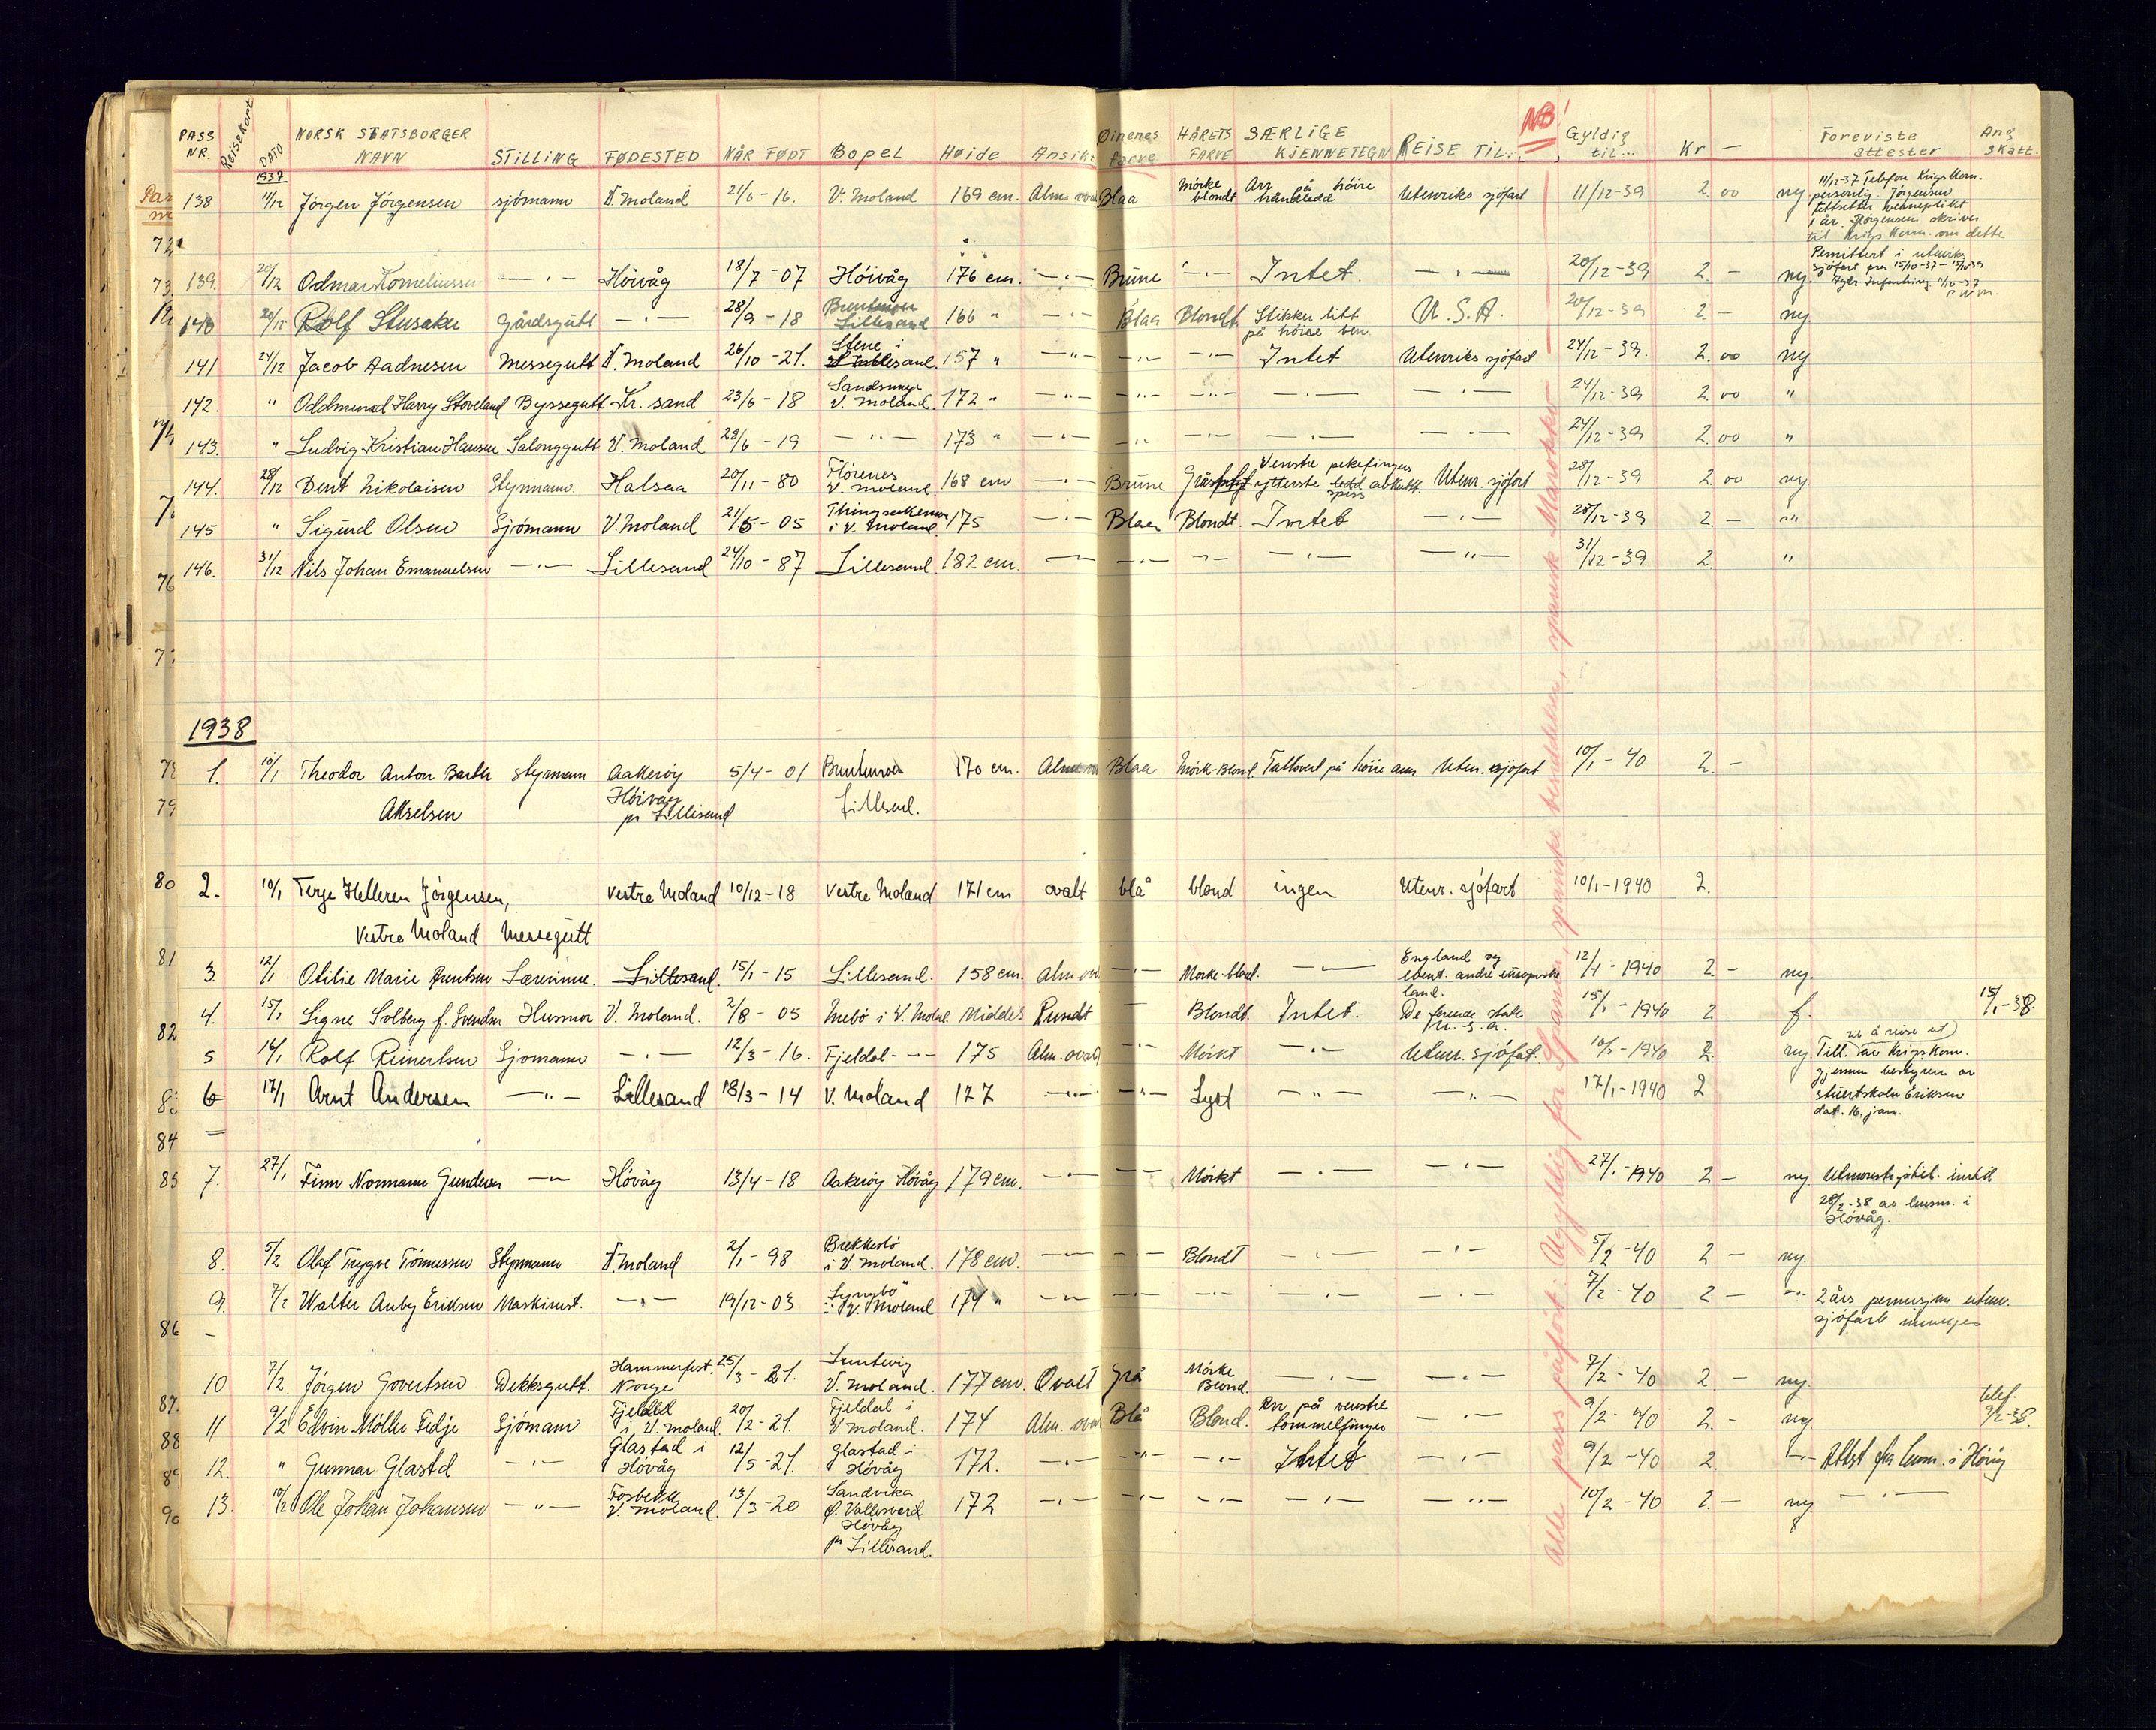 PASS NR. Reisekort DATO NORSK STATSBORGER NAVN STILLING FØDESTED NÅR FØDT Bopel Høide Ansikt Øinenes farve HÅRETS FARVE SÆRLIGE KJENNETEGN REISE TIL: NB! Gyldig til... Kr — Foreviste attester Ang skatt.
1937
138 11/12 Jörgen Jörgensen sjömann V. Moland 21/6-16. V. Moland 169 cm. Alm. oval Blaa Mörke blondt Arr å höire håndledd Utenriks sjöfart 11/12-39 2 00 ny. 11/12-37 Telefon Krigskom. personlig. Jörgensen
1 år. Jörgensen skriver
til Krigskom. om dette
139. 20/12 Odmar Korneliussen —·— Höivåg 18/7-07 Höivåg 176 cm. —·— Brune —·— Intet. —·— 20/12-39 2 — ny. Permittert i utenriks sjöfart fra 15/10-37 - 15/10-39
140 20/12 Rolf Stusaker gårdsgutt —·— 28/9-18 Brentemoen Lillesand 166 " —·— Blaa Blondt Stikker litt på höire ben. U.S.A. 20/12-39 2 — ny.
141 24/12 Jacob Aadnesen Messegutt V. Moland 26/10-21. Stene i 157 " —"— —·— —·— Intet Utenriks sjöfart 24/12-39. 2. 00 ny
142. " Oddmund Harry Stoveland Byssegutt Kr. sand 23/6-18 V. Moland. 172 " —·— —·— —·— —·— —·— 24/12-39 2. 00 "
143. " Ludvig Kristian Hansen Salonggutt V. Moland 28/6-19 —"— 173 " —·— —·— —·— —·— —·— 24/12-39 2. 00 "
144. 28/12 Bent Nikolaisen Styrmann Halsaa 20/11-80 V. Moland. 168 cm —·— Brune Grå Venstre pekefingers ytterste ledd spiss avkutt. Utenr. sjöfart 28/12-39 2. 00 ny
145 " Sigurd Olsen Sjömann V. Moland 21/5-05 i V. Moland. 175 —·— Blaa Blondt. Intet —·— 28/12-39 2 — "
146. 31/12 Nils Johan Emanuelsen —·— Lillesand 24/10-87 Lillesand 182 cm. —·— —·— —·— —·— —"— 31/12-39 2. "
1938
1. 10/1 Theodor Anton Barth styrmann Aakeröy 5/4-01 170 cm. Alm. Blaa Mörk-Blond Tattovert på höire arm Uten. sjöfart 10/1-40 2. —
Akselsen Höivåg pr Lillesand Lillesand.
2. 10/1 Terje Helleren Jörgensen, Vestre Moland 10/12-18 Vestre Moland 171 cm ovalt blå blond ingen Utenr. sjöfart 10/1-1940 2.
Vestre Moland Messegutt
3. 12/1 Otilie Marie Berntsen Lærerinne. Lillesand. 15/1-15 Lillesand. 158 cm. Alm. —·— Mörke-blond. —·— England og event. andre europeiske land. 12/1-1940 2 — ny.
4. 15/1 Signe Solberg f. Svendsen Husmor V. Moland. 2/8-05 i V. Moland. Middels Rundt — Blondt. Intet. De forende stater U.S.A. 15/1-1940 2 f. 15/1-38.
5 16/1 Rolf Reinertsen Sjömann —·— 12/3-16. Fjeldal —·— 175 Alm. ovalt —"— Mörkt —·— Utenr. sjöfart. 2. ny Till. til å reise ut av Krigskom.
gjennem bestyrer av stuertskolen Eriksen dat. 16. jan.
6 17/1 Arnt Andersen —"— Lillesand 18/3-14 V. Moland 177 —·— —"— Lyst —"— —"— 17/1-1940 2
7. 27/1 Finn Normann Gundersen —"— Hövåg 13/4-18 Aakeröy Hövåg 179 cm. —·— —·— Mörkt —·— —·— 27/1-1940 2 — ny. inntil
28/2-38 av lensm. i Hövåg.
8. 5/2 Olaf Trygve Tönnessen Styrmann V. Moland 2/1-98 Brekkestö i V. Moland. 178 cm. —"— —·— Blondt —·— —·— 5/2-40 2 — ny.
9. 7/2 Walter Auby Eriksen Maskinist. —·— 19/12-03 i V. Moland 174 " —"— —·— —·— —·— —·— 7/2-40 2 — —"— 2 års permisjon uten. sjöfart
10 7/2. Jörgen Govertsen Dekksgutt. Hammerfest. Norge 25/3-21. Luntevig V. Moland. 177 cm. Ovalt Grå Mörke Blond. —·— —·— 7/2-40 2. — ny.
11 9/2 Edvin Möller Fidje Sjömann Fjeldal i V. Moland. 20/2-21. Fjeldal i V. Moland. 174 Alm. oval Blå Blond. Arr på venstre tommelfinger —·— 9/2-40 2. — ny. telef. 9/2-38.
12. " Gunnar Glastad —·— Glastad i Hövåg 12/5-21. Glastad i Hövåg 172. —·— —"— —·— Intet —·— 9/2-40 2. —"— Attest fra lensm. i Hövåg
13. 10/2 Ole Johan Johansen —"— Fosbekk V. Moland. 13/3-20 Sandvika p. Vallesverd Hövåg pr Lillesand. 172 —·— —·— —·— —·— —"— 10/2-40 2. — ny. —·—
Pas nr
72
73
76
77
78
79
80
81
82
84
85
86
87.
88
90
Alle pass påfört: Ugyldig for Spania, spanske besiddelser, spansk Marokko